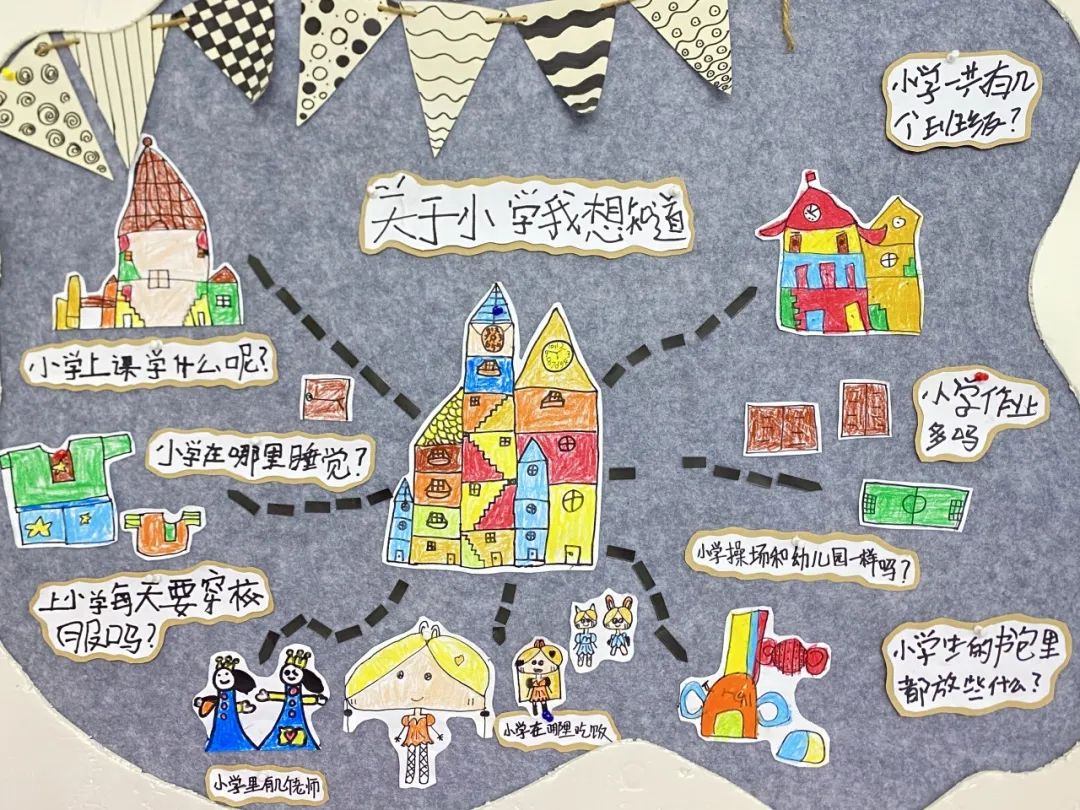 小学一共有几
个班级？
关于小学我想知道
小学上课学什么呢？
小学作业
多吗
小学在哪里睡觉？
小学操场和幼儿园一样吗？
上小学每天要穿校
服吗？
小学生的书包里
都放些什么？
小学在哪里吃饭
小学里有几佬师